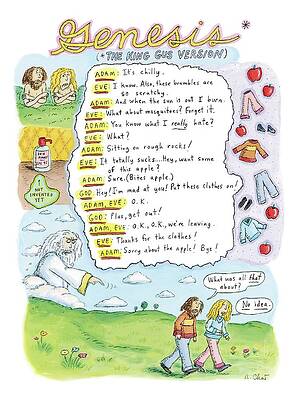 Genesis*
(*THE KING GUS VERSION)
ADAM: It's chilly.
EVE: I know. Also, these brambles are
so scratchy.
ADAM: And when the sun is out I burn.
EVE: What about mosquitoes? Forget it.
ADAM: You know what I really hate?
EVE: What?
ADAM: Sitting on rough rocks!
EVE: It totally sucks... Hey, want some
of this apple?
ADAM: Sure. (Bites apple.)
GOD: Hey! I'm mad at you! Put these clothes on!
ADAM, EVE: O.K.
GOD: Plus, get out!
ADAM, EVE: O.K., O.K., we're leaving.
EVE: Thanks for the clothes!
ADAM: Sorry about the apple! Bye!
NOT
INVENTED
YET
What was all that
about?
No idea.
R. Chast